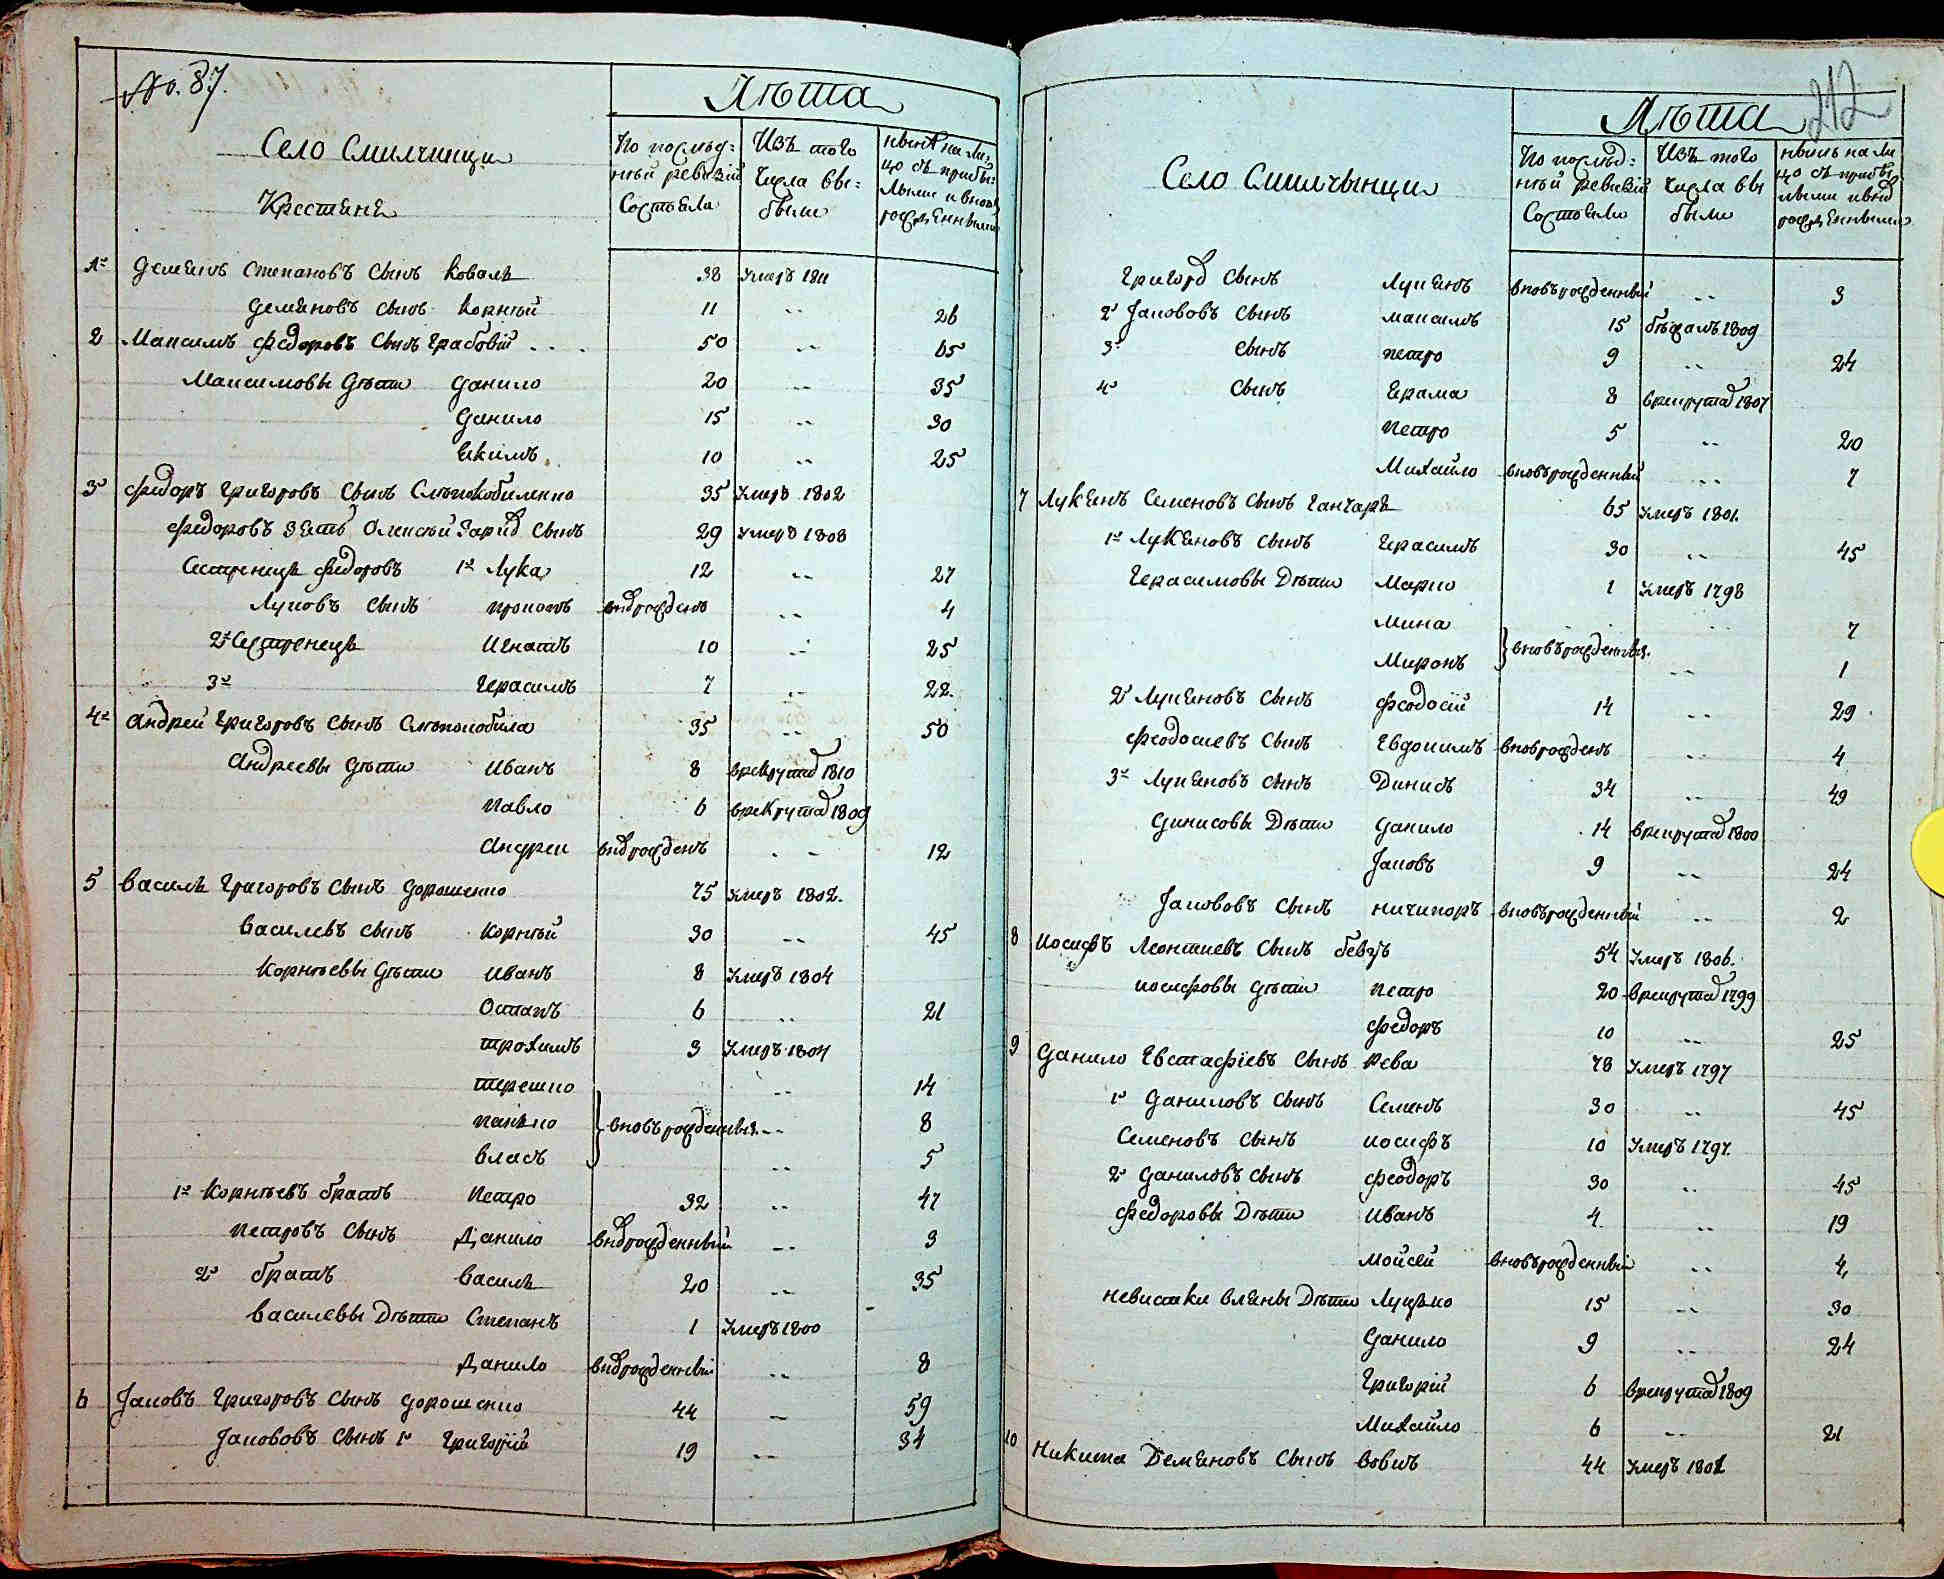 No. 87.
Лѣта
Село Смилчинци
Крестяне
По послѣд:
нѣй ревизій
Состояли
Изъ того
Числа вы:
были
нынѣ на ли:
цо съ прибы:
лыми и вновь
рожденными
1й Демянъ Степановъ Сынъ Коваль 38 Умеръ 1811
Демяновъ Сынъ Корнѣй 11 -- 26
2 Максимъ Федоровъ Сынъ Грабовій 50 -- 65
Максимовы дѣти Данило 20 -- 35
Данило 15 -- 30
Екимъ 10 -- 25
3й Федоръ Григоровъ Сынъ Слѣпокобиленко 35 Умеръ 1802
Федоровъ зять Олексѣй Сынъ 29 Умеръ 1808
Сестренецъ Федоровъ 1й Лука 12 -- 27
Луковъ Сынъ Прокопъ вноврожденъ -- 4
2й Сестренецъ Игнатъ 10 -- 25
3й Герасимъ 7 -- 22.
4й Андрей Григоровъ Сынъ Слѣпокобила 35 -- 50
Андреевы дѣти Иванъ 8 врекрута 1810
Павло 6 врекрута 1809
Андрей вноврожденъ -- 12
5 Василь Григоровъ Сынъ Дорошенко 75 Умеръ 1802.
Василевъ Сынъ Корнѣй 30 -- 45
Корнѣевы дѣти Иванъ 8 Умеръ 1804
Остапъ 6 -- 21
Трохимъ 3 Умеръ 1804
Терешко -- 14
Панько } вновьрожденныя -- 8
Власъ -- 5
1й Корнѣевъ братъ Петро 32 -- 47
Петровъ Сынъ Данило вноврожденный -- 3
2й братъ Василь 20 -- 35
Василевы Дѣти Степанъ 1 Умеръ 1800
Данило вноврожденный -- 8
6 Яковъ Григоровъ Сынъ Дорошенко 44 -- 59
Якововъ Сынъ 1й Григорій 19 -- 34
212
Лѣта
Село Смилчынци
По послѣд:
нѣй ревизій
Состояли
Изъ того
Числа вы
были
нынѣ на ли
цо съ прибы
лыми и внов
рожденными
Григор Сынъ Лукянъ вновьрожденный -- 3
2й Якововъ Сынъ Максимъ 15 бѣжалъ 1809
3й Сынъ Петро 9 -- 24
4й Сынъ Ерама 8 врекрута 1807
Петро 5 -- 20
Михайло вновьрожденный -- 7
7 Лукянъ Семеновъ Сынъ Ганчаръ 65 Умеръ 1801.
1й Лукяновъ Сынъ Герасимъ 30 -- 45
Герасимовы Дѣти Марко 1 Умеръ 1798
Мина -- 7
} вновьрожденныя.
Миронъ -- 1
2й Лукяновъ Сынъ Феодосій 14 -- 29
Феодосиевъ Сынъ Евдокимъ вноврожденъ -- 4
3й Лукяновъ Сынъ Динисъ 34 -- 49
Динисовы Дѣти Данило 14 врекрута 1800
Яковъ 9 -- 24
Якововъ Сынъ Ничипоръ вновьрожденный -- 2
8 Иосифъ Леонтиевъ Сынъ 54 Умеръ 1806.
Иосифовы дѣти Петро 20 врекрута 1799
Федоръ 10 -- 25
9 Данило Евстафіевъ Сынъ Рева 78 Умеръ 1797
1й Даниловъ Сынъ Семенъ 30 -- 45
Семеновъ Сынъ Иосифъ 10 Умеръ 1797.
2й Даниловъ Сынъ Феодоръ 30 -- 45
Федоровы Дѣти Иванъ 4 -- 19
Мойсей вновьрожденный -- 4
Невистки Дѣти Луцько 15 -- 30
Данило 9 -- 24
Григорій 6 врекрута 1809
Михайло 6 -- 21
10 Никита Демяновъ Сынъ Вовкъ 44 Умеръ 1802